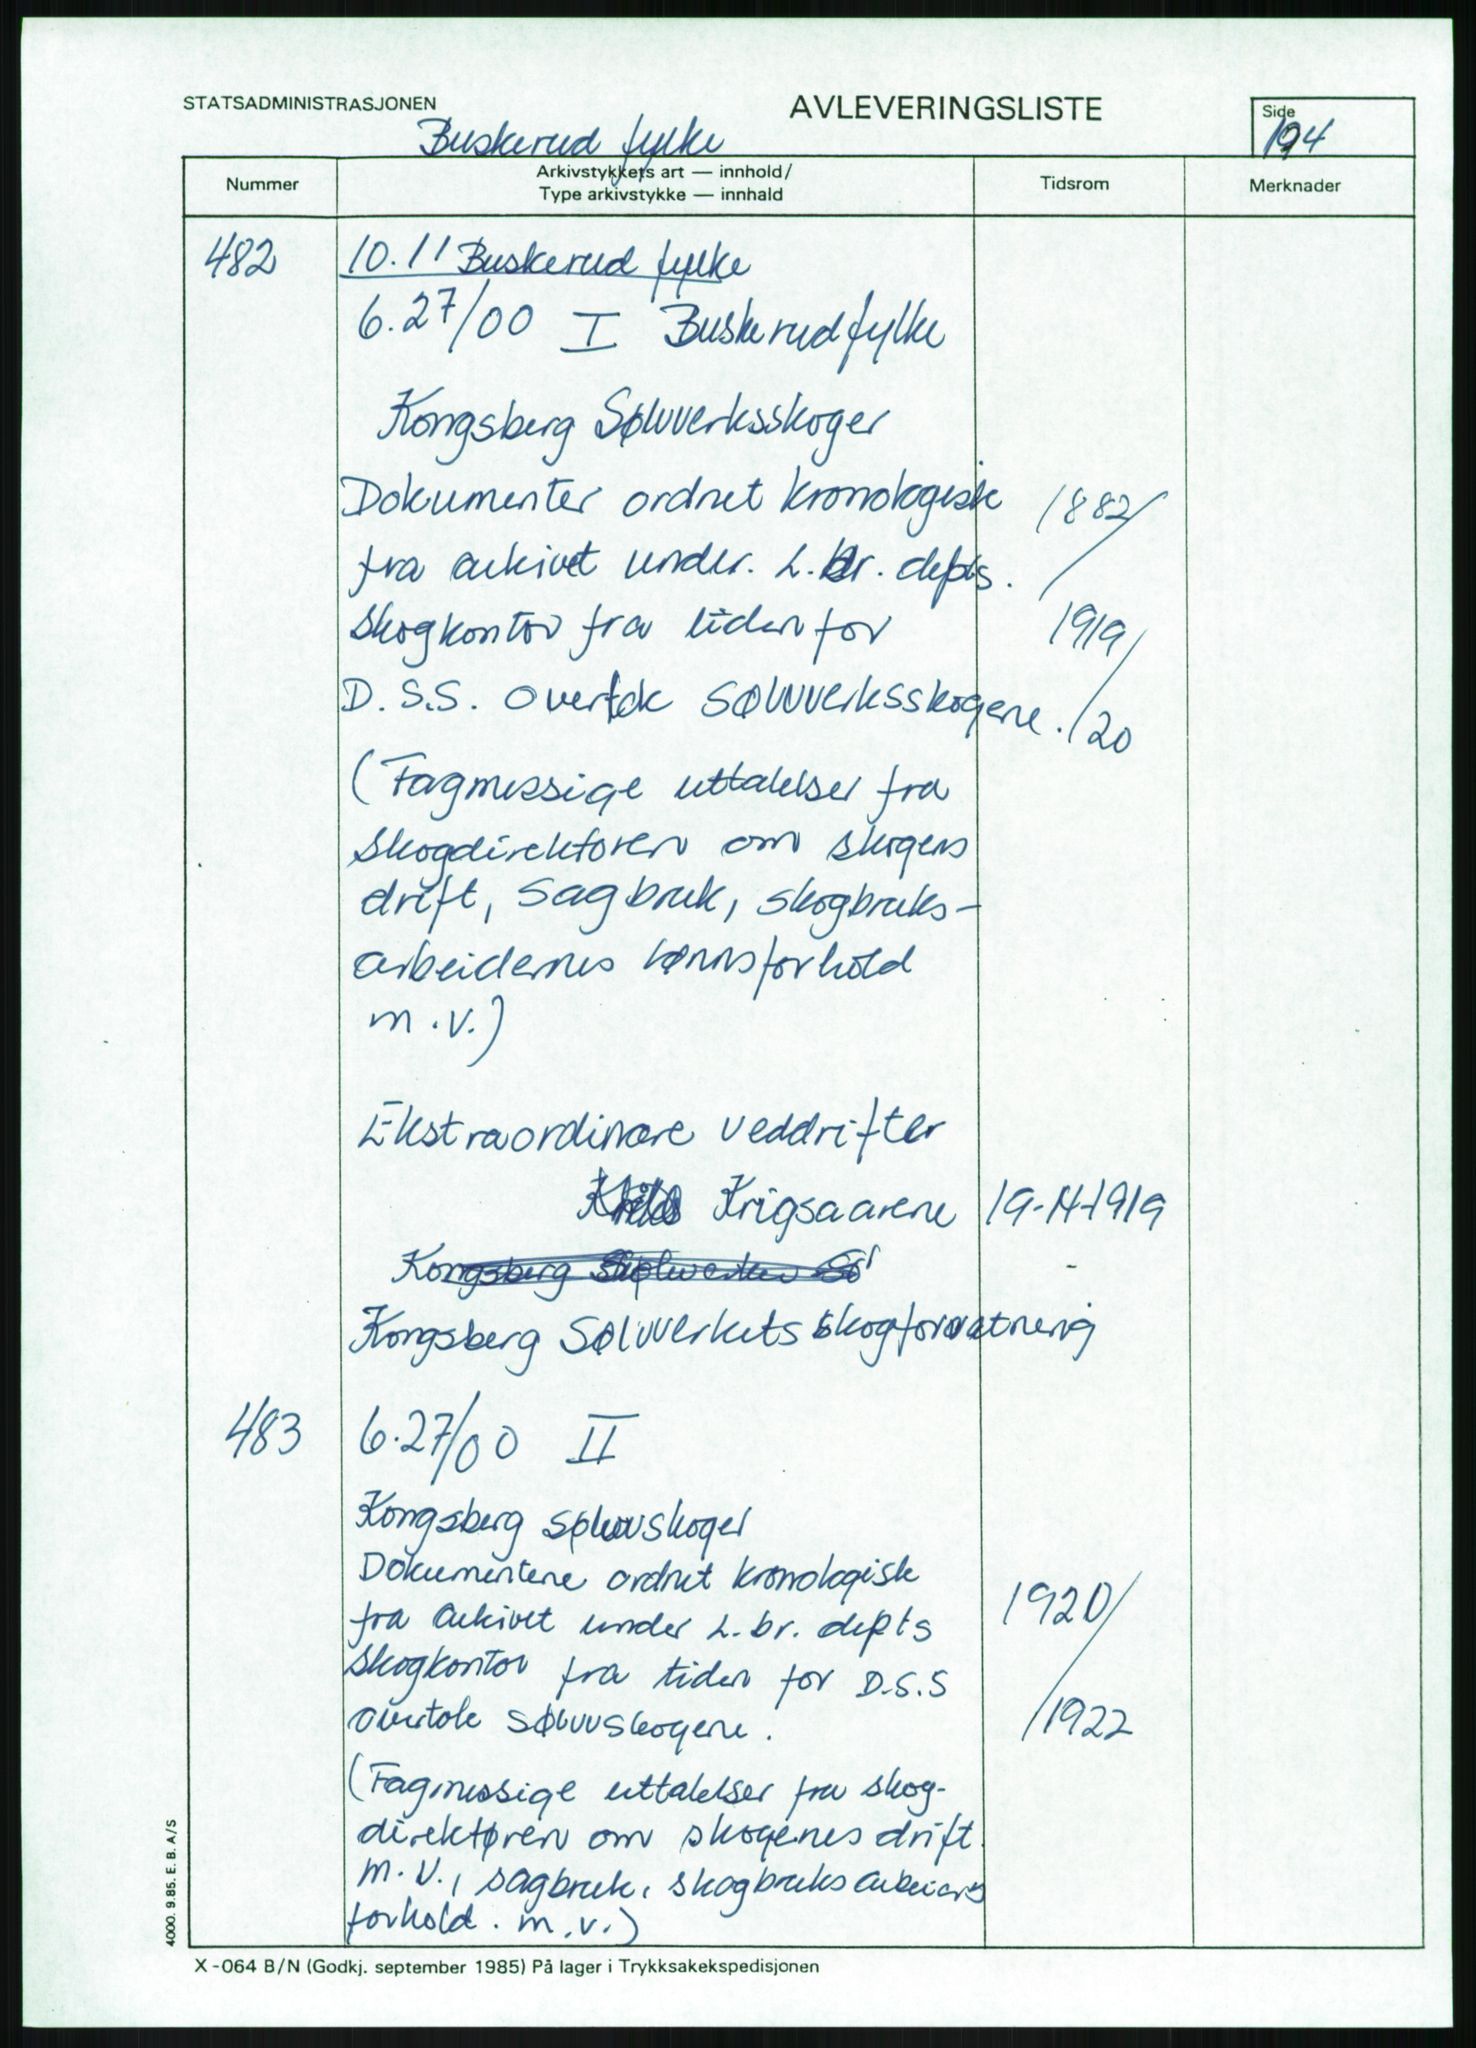 STATSADMINISTRASJONEN
AVLEVERINGSLISTE
Side
194
Buskerud fylke
Nummer
Arkivstykkets art — innhold/
Type arkivstykke — innhald
Tidsrom
Merknader
482
10.11 Buskerud fylke
6.27/00 I Buskerud fylke
Kongsberg Sølvverksskoger
Dokumenter ordnet kronologisk 1882/
fra arkivet under. L.br. depts.
Skogkontor fra tiden for 1919
D.S.S. overtok Sølvverksskogene. /20
(Fagmessige uttalelser fra
skogdirektøren om skogens
drift, sagbruk, skogbruks-
arbeidernes lønnsforhold
m.v.)
Ekstraordinære veddrifter
Krigsaarene 19-14-1919
Kongsberg
Kongsberg Sølvverkets skogforvaltning
483 6.27/00 II
Kongsberg sølvvskoger
Dokumentene ordnet kronologisk
fra arkivet under L.br. depts 1920/
skogkontor fra tiden for D.S.S
overtok sølvvskogene. /1922
(Fagmessige uttalelser fra skog-
direktøren om skogenes drift.
m.v., sagbruk, skogbruksarbeiders
forhold. m.v.)
4000. 9.85. E. B. A/S
X-064 B/N (Godkj. september 1985) På lager i Trykksakekspedisjonen